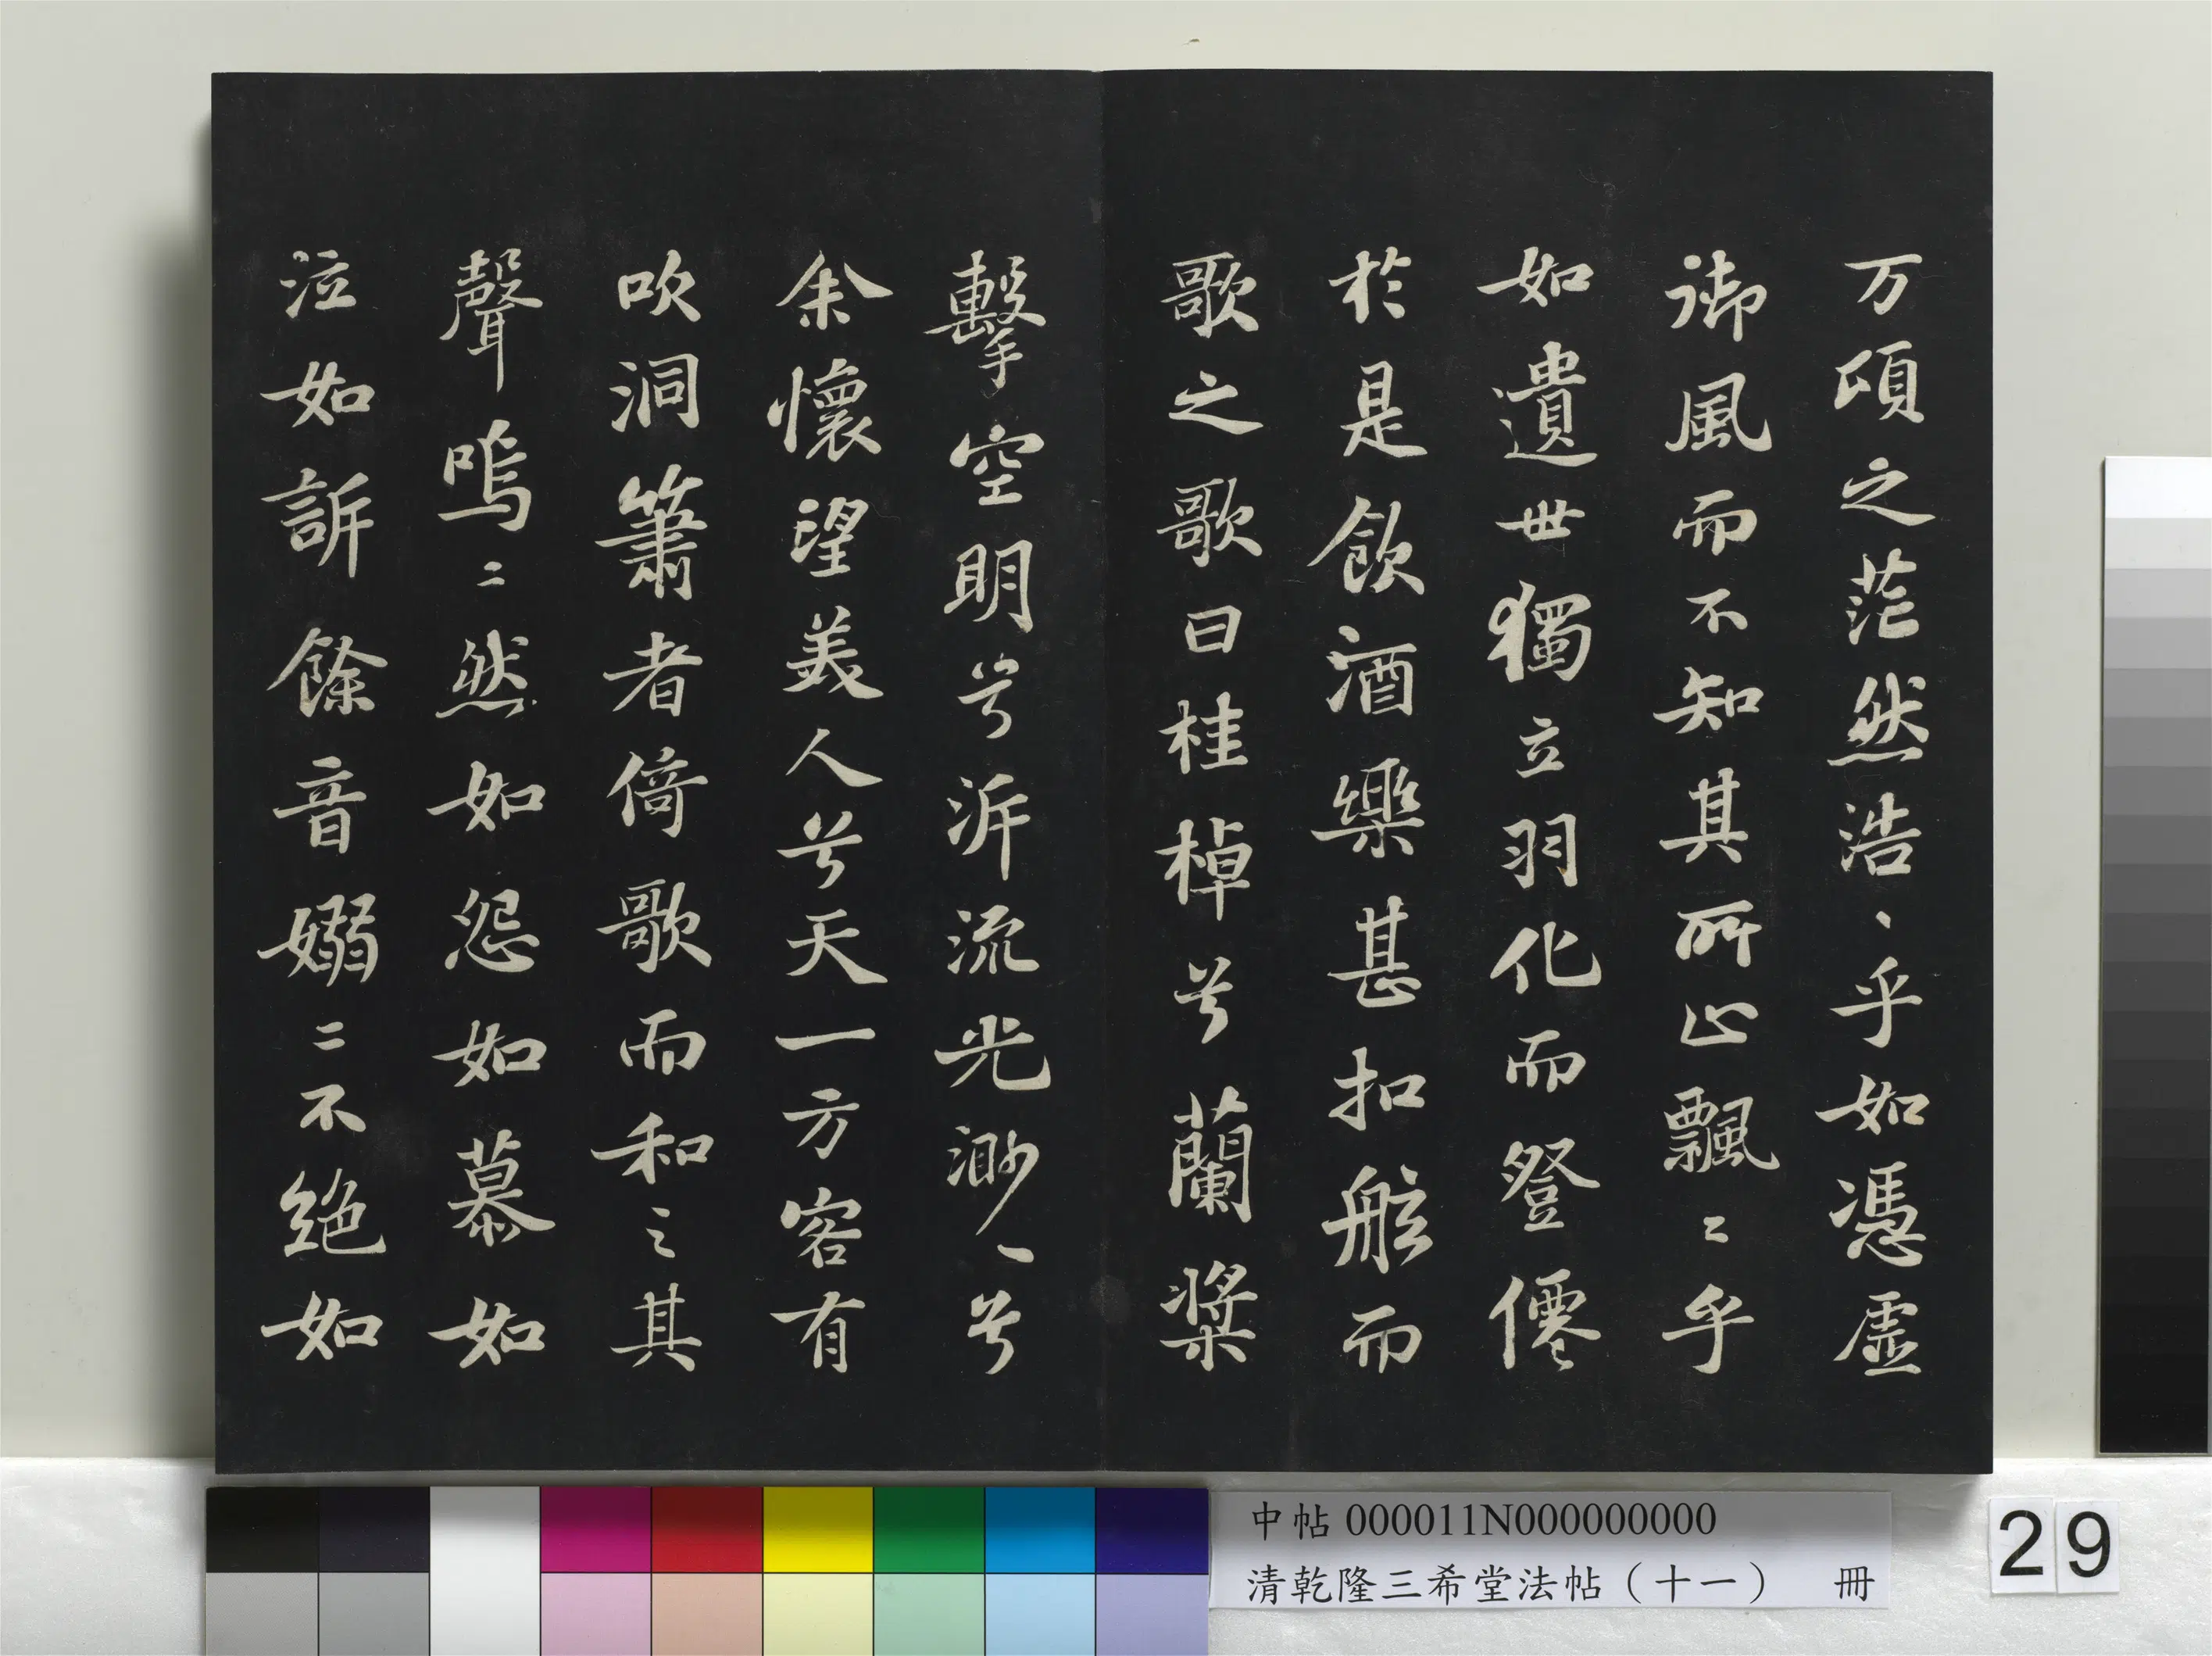 万頃之茫然浩丶乎如馮虛
御風而不知其所止飄〻乎
如遺世獨立羽化而登僊
於是飲酒樂甚扣舷而
歌之歌曰桂棹兮蘭槳
擊空明兮泝流光渺丶兮
余懷望美人兮天一方客有
吹洞簫者倚歌而和之其
聲嗚〻然如怨如慕如
泣如訴餘音嫋〻不絕如
中帖 000011N000000000
清乾隆三希堂法帖（十一） 冊
29